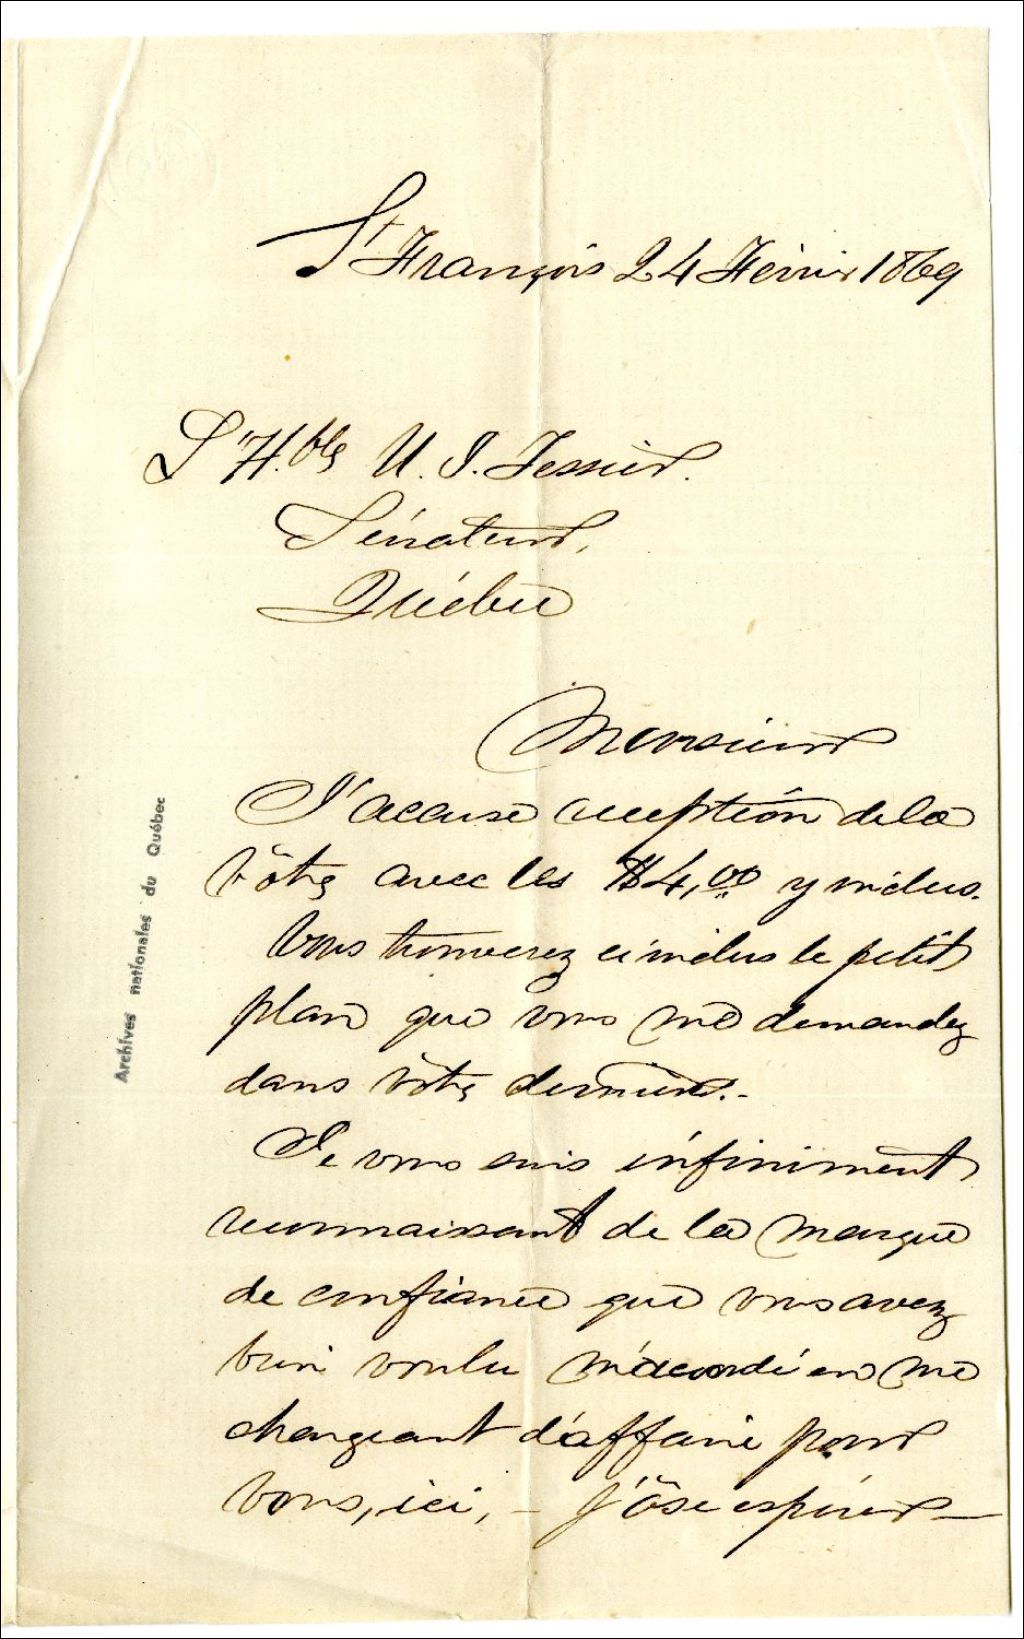 St François 24 Février 1869
L'H.ble U. J. Tessier.
Sénateur,
Québec
Monsieur
J'accuse reception de la
vôtre avec les $4,00 y inclus.
Vous trouverez ci inclus le petit
plan que vous me demandez
dans vôtre dernière.-
Je vous suis infiniment
reconnaissant de la marque
de confiance que vous avez
bien voulu m'accordé en me
chargeant d'affaire pour
vous, ici, - j'ôse espérer -
Archives nationales du Québec